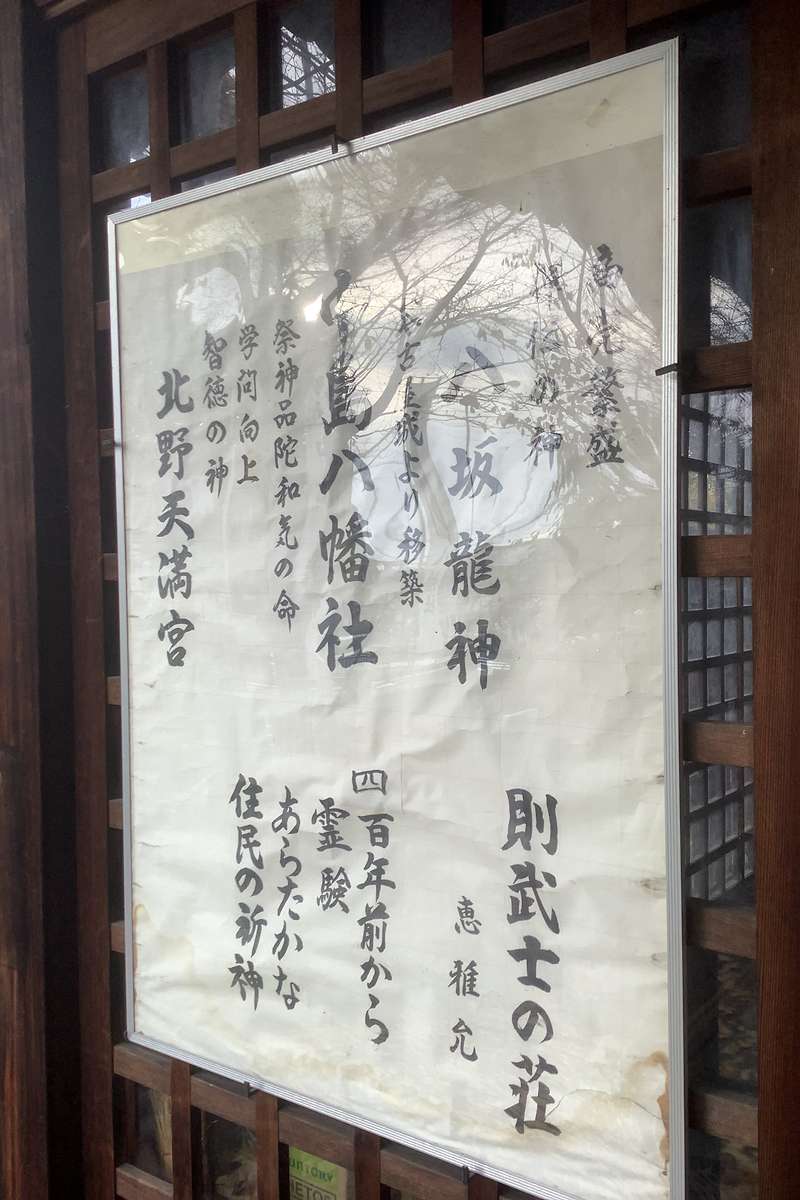 商売繁盛
の神
八坂龍神
城より移築
中島八幡社
祭神品陀和気の命
学問向上
智徳の神
北野天満宮
則武士の荘
恵雅允
四百年前から
霊験
あらたかな
住民の祈神
SUNTORY